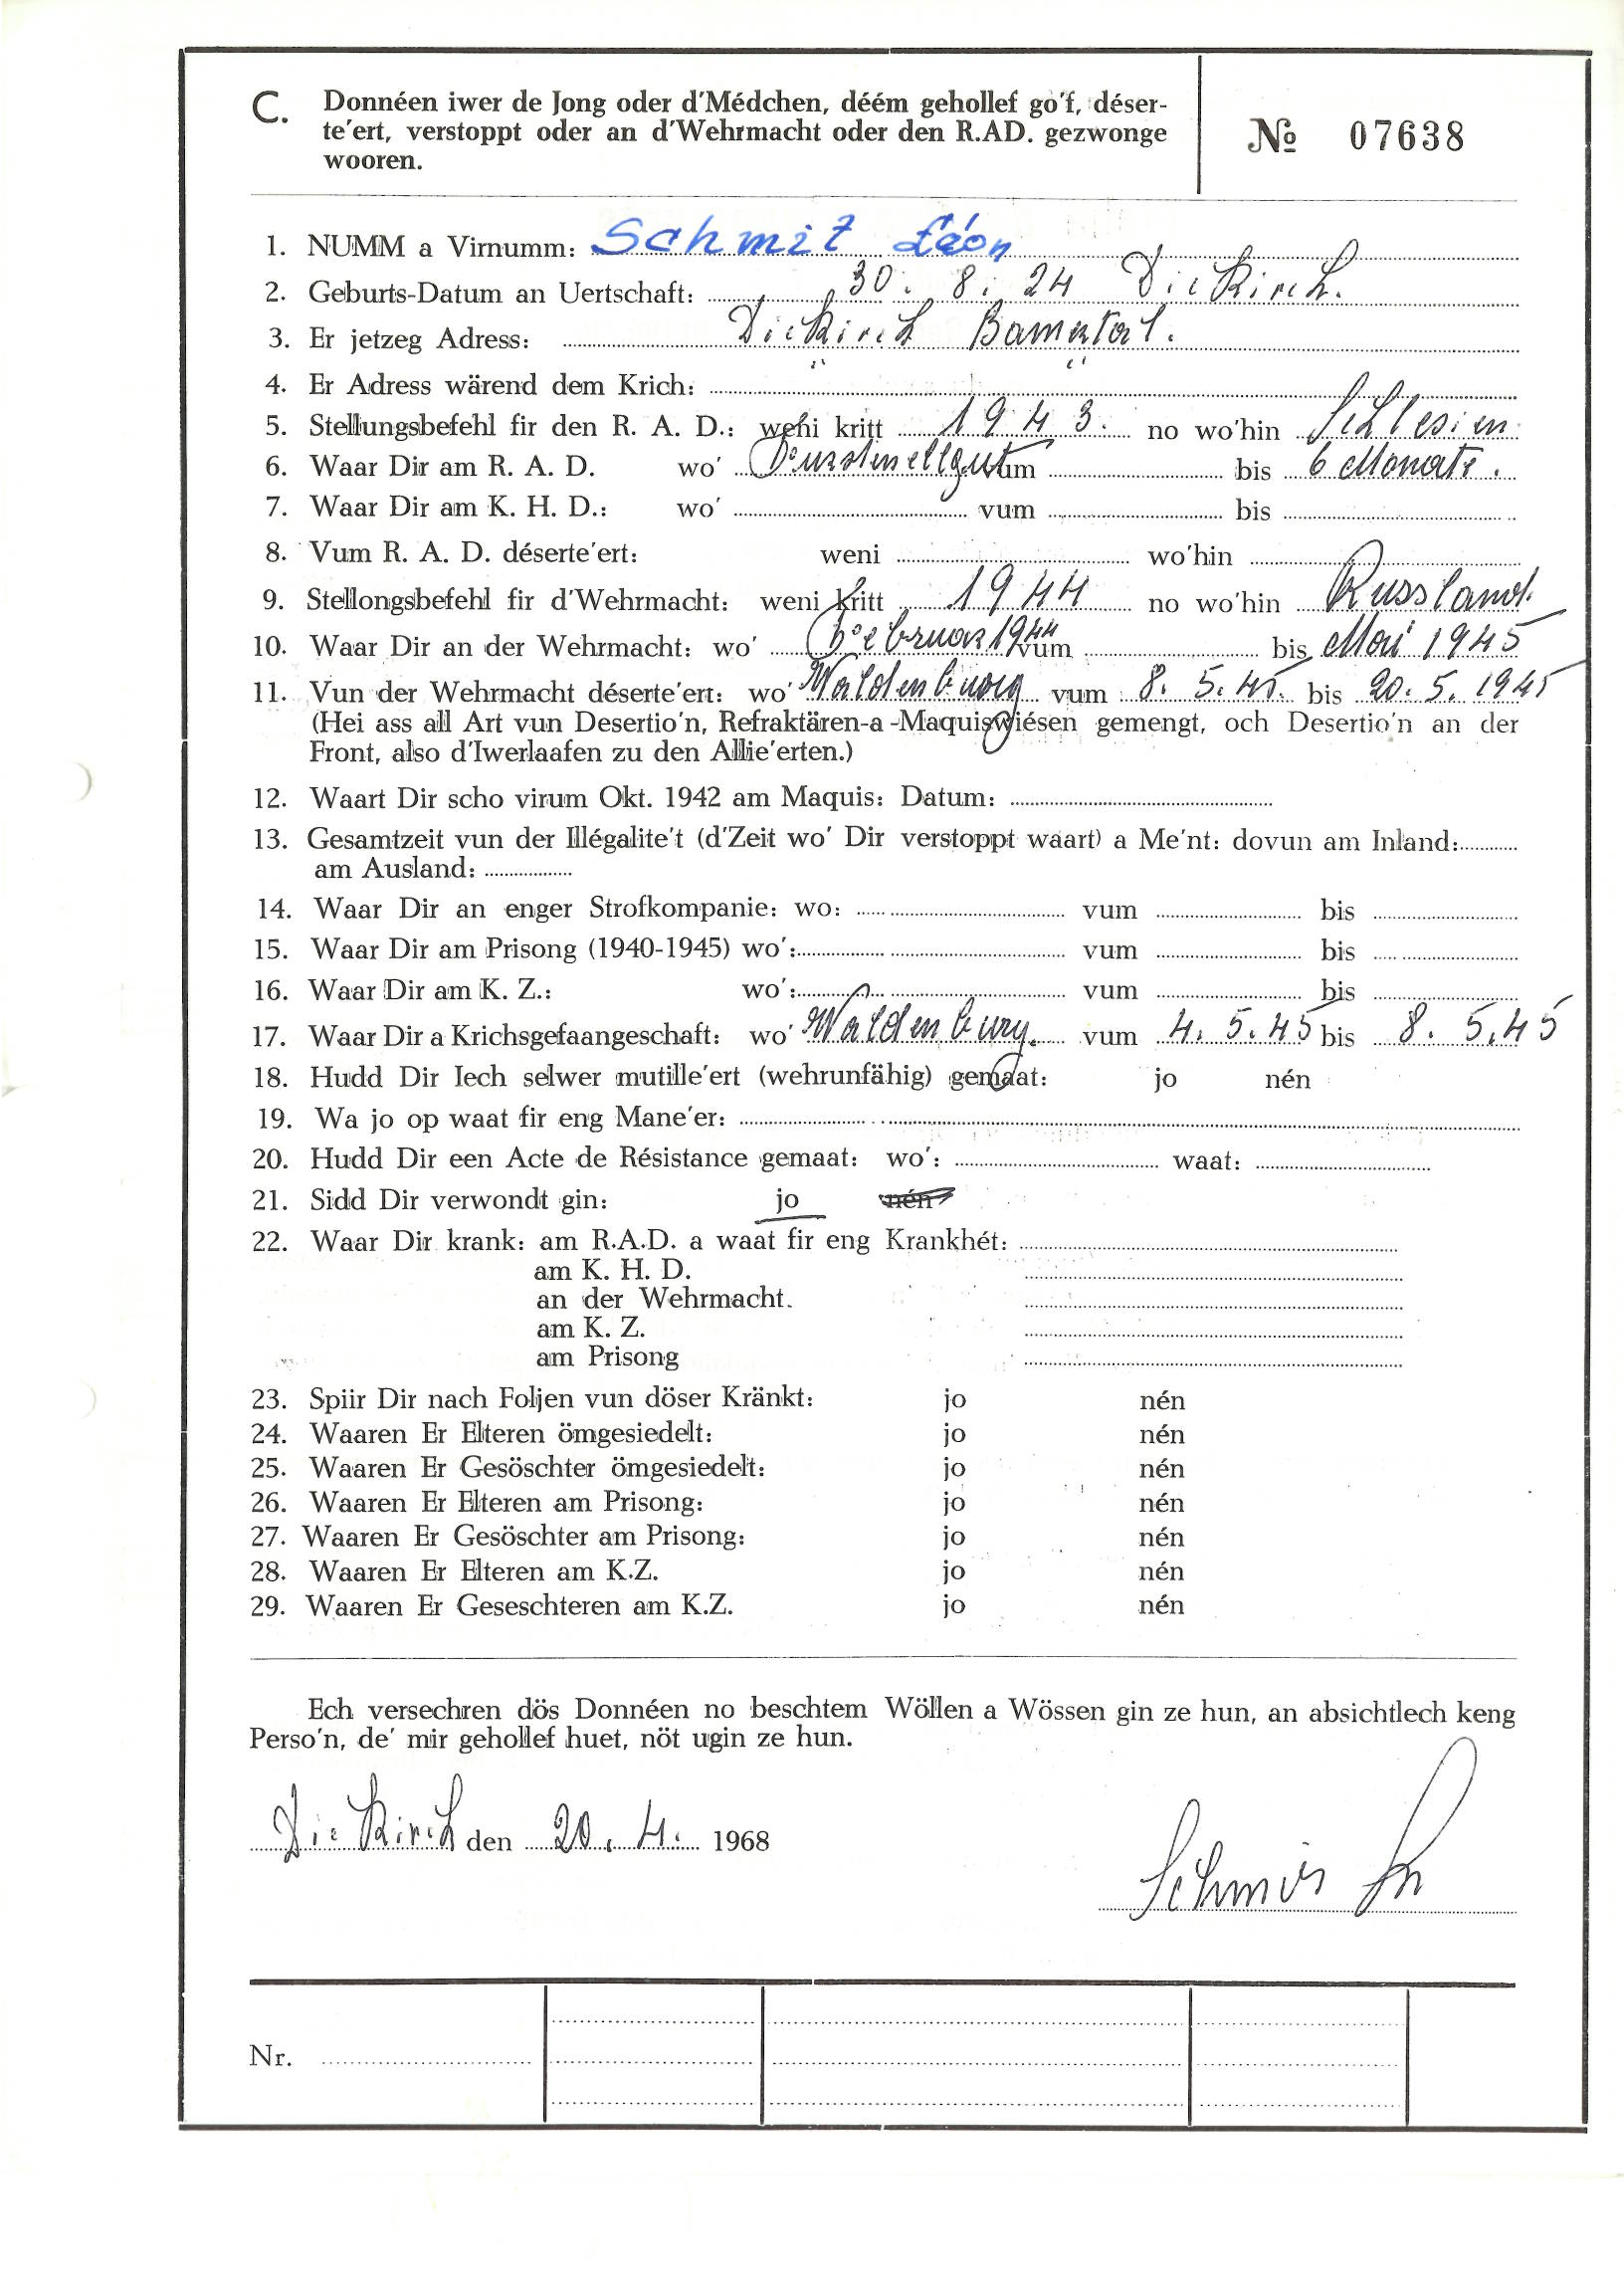 C. Donnéen iwer de Jong oder d'Médchen, déém gehollef go'f, déser-
te'ert, verstoppt oder an d'Wehrmacht oder den R.AD. gezwonge
wooren.
№ 07638
1. NUMM a Virnumm: Schmit Léon
2. Geburts-Datum an Uertschaft: 30. 8. 24 Diekirch.
3. Er jetzeg Adress: Diekirch Bamertal.
4. Er Adress wärend dem Krich: " "
5. Stellungsbefehl fir den R. A. D.: weni kritt 1943. no wo'hin Schlesien
6. Waar Dir am R. A. D. wo' vum bis 6 Monate.
7. Waar Dir am K. H. D.: wo' vum bis
8. Vum R. A. D. déserte'ert: weni wo'hin
9. Stellongsbefehl fir d'Wehrmacht: weni kritt 1944 no wo'hin Russland.
10. Waar Dir an der Wehrmacht: wo' Februar 1944 vum bis Mai 1945
11. Vun der Wehrmacht déserte'ert: wo' Waldenburg vum 8. 5. 45. bis 20. 5. 1945
(Hei ass all Art vun Desertio'n, Refraktären-a-Maquiswiésen gemengt, och Desertio'n an der
Front, also d'Iwerlaafen zu den Allie'erten.)
12. Waart Dir scho virum Okt. 1942 am Maquis: Datum:
13. Gesamtzeit vun der Illégalite't (d'Zeit wo' Dir verstoppt waart) a Me'nt: dovun am Inland:
am Ausland:
14. Waar Dir an enger Strofkompanie: wo: vum bis
15. Waar Dir am Prisong (1940-1945) wo': vum bis
16. Waar Dir am K. Z.: wo': vum bis
17. Waar Dir a Krichsgefaangeschaft: wo' Waldenburg. vum 4. 5. 45 bis 8. 5. 45
18. Hudd Dir Iech selwer mutille'ert (wehrunfähig) gemaat: jo nén
19. Wa jo op waat fir eng Mane'er:
20. Hudd Dir een Acte de Résistance gemaat: wo': waat:
21. Sidd Dir verwondt gin: jo nén
22. Waar Dir krank: am R.A.D. a waat fir eng Krankhét:
am K. H. D.
an der Wehrmacht.
am K. Z.
am Prisong
23. Spiir Dir nach Foljen vun döser Kränkt: jo nén
24. Waaren Er Elteren ömgesiedelt: jo nén
25. Waaren Er Gesöschter ömgesiedelt: jo nén
26. Waaren Er Elteren am Prisong: jo nén
27. Waaren Er Gesöschter am Prisong: jo nén
28. Waaren Er Elteren am K.Z. jo nén
29. Waaren Er Geseschteren am K.Z. jo nén
Ech versechren dös Donnéen no beschtem Wöllen a Wössen gin ze hun, an absichtlech keng
Perso'n, de' mir gehollef huet, nöt ugin ze hun.
Diekirch den 20. 4. 1968
Schmit
Nr.